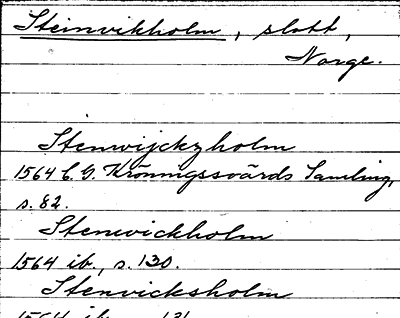 Steinvikholm, slott,
Norge.
Stenwijckzholm
1564 C. G. Kröningssvärds Samling,
s. 82.
Stenwickholm
1564 ib., s. 130.
Stenvicksholm
1564 ib., s. 131